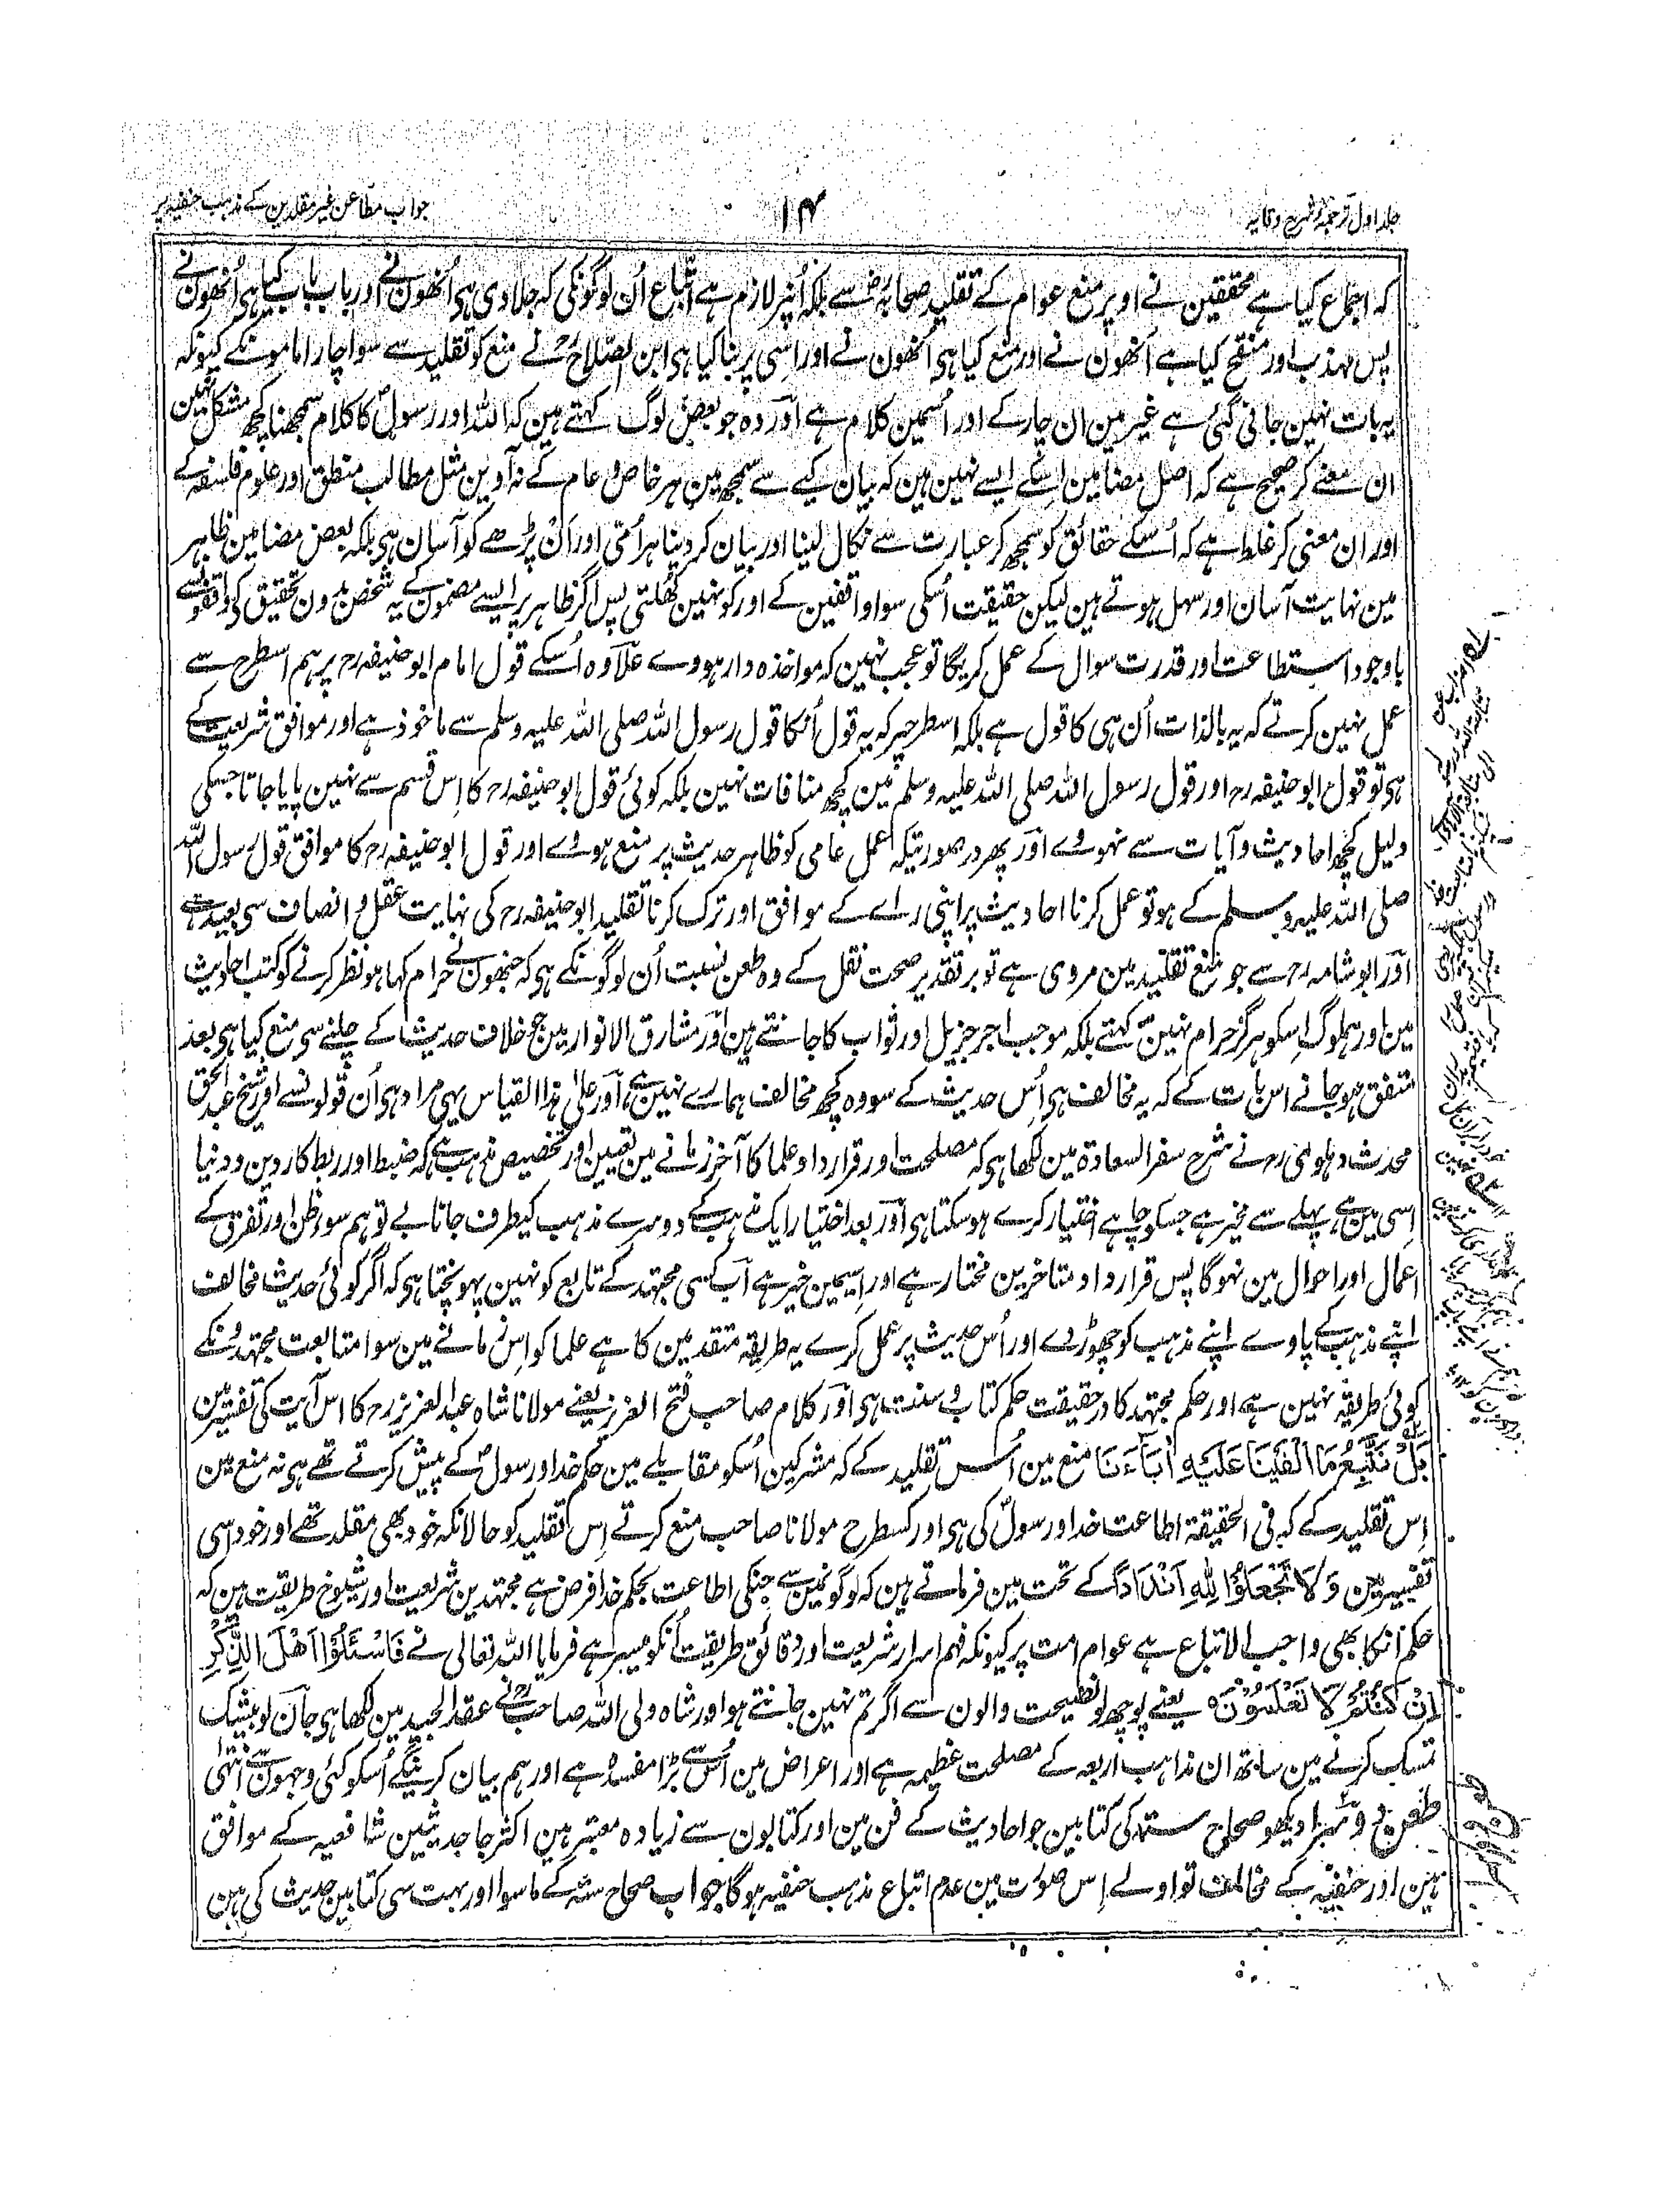 جلد اول ترجمۂ شرح وقایہ
۱۴
جواب مطاعن غیر مقلدین کے مذہب حنفیہ پر
کہ اجماع کیا ہے محققین نے اوپر منع عوام کے تقلید صحابہؓ سے بلکہ اُنپر لازم ہے اتباع اُن لوگونکی کہ جلا دی ہی اُنھون نے اور باب باب کیا ہی اُنھون نے
پس مہذب اور منقح کیا ہے اُنھون نے اور منع کیا ہی اُنھون نے اور اسی پر بنا کیا ہی ابن الصّلاحؒ نے منع کو تقلید سے سوا چار امامونکے کیونکہ
یہ بات نہین جانی گئی ہے غیر مین ان چار کے اور اُسمین کلام ہے اور وہ جو بعض لوگ کہتے ہین کہ اللہ اور رسولؐ کا کلام سمجھنا کچھ مشکل نہین
ان معنے کر صحیح ہے کہ اصل مضامین اسکے ایسے نہین ہین کہ بیان کیے سے سمجھ مین ہر خاص و عام کے نہ آوین مثل مطالب منطق اور علوم فلسفہ کے
اور ان معنی کر غلط ہے کہ اُسکے حقائق کو سمجھ کر عبارت سے نکال لینا اور بیان کر دینا ہر اُمّی اور اَن پڑھے کو آسان ہی بلکہ بعض مضامین ظاہر
مین نہایت آسان اور سہل ہوتے ہین لیکن حقیقت اُسکی سوا واقفین کے اور کو نہین کھلتی پس اگر ظاہر پر ایسے مضمون کے یہ شخص بدون تحقیق کی واقفون سے
باوجود استطاعت اور قدرت سوال کے عمل کریگا تو عجب نہین کہ مواخذہ دار ہووے علاوہ اُسکے قول امام ابوحنیفہ رح پر ہم اسطرح سے
عمل نہین کرتے کہ یہ بالذات اُن ہی کا قول ہے بلکہ اسطرحپر کہ یہ قول اُنکا قول رسول اللہ صلی اللہ علیہ وسلم سے ماخوذ ہے اور موافق شریعت کے
ہی تو قول ابوحنیفہ رح اور قول رسول اللہ صلی اللہ علیہ وسلم مین کچھ منافات نہین بلکہ کوئی قول ابوحنیفہ رح کا اِس قسم سے نہین پایا جاتا جسکی
دلیل کچھ احادیث و آیات سے نہووے اور پھر در صورتیکہ عمل عامی کو ظاہر حدیث پر منع ہووے اور قول ابوحنیفہ رح کا موافق قول رسول اللہ
صلی اللہ علیہ وسلم کے ہو تو عمل کرنا احادیث پر اپنی راے کے موافق اور ترک کرنا تقلید ابوحنیفہ رح کی نہایت عقل و انصاف سی بعید ہے
اور ابو شامہ رح سے جو منع تقلید مین مروی ہے تو بر تقدیر صحت نقل کے وہ طعن نسبت اُن لوگونکے ہی کہ جنھون نے حرام کہا ہو نظر کرنے کو کتب احادیث
مین اور ہملوگ اِسکو ہرگز حرام نہین کہتے بلکہ موجب اجر جزیل اور ثواب کا جانتے ہین اور مشارق الانوار مین جو خلاف حدیث کے چلنے سی منع کیا ہی بعد
متفق ہو جانے اس بات کے کہ یہ مخالف ہی اُس حدیث کے سو وہ کچھ مخالف ہمارے نہین ہے اور علیٰ ہذا القیاس یہی مراد ہی اُن قولونسے اور شیخ عبد الحق
محدث دہلوی رح نے شرح سفر السعادة مین لکھا ہی کہ مصلحت اور قرارداد علما کا آخر زمانے مین تعیین اور تخصیص مذہب ہے کہ ضبط اور ربط کار دین و دنیا
اسی مین ہے پہلے سے مخیر ہے جسکو چاہے اختیار کرے ہو سکتا ہی اور بعد اختیار ایک مذہب کے دوسرے مذہب کیطرف جانا بے توہم سوء ظن اور تفرق کے
اعمال اور احوال مین نہوگا پس قرارداد متاخرین مختار ہے اور اِسیمین خیر ہے اب کسی مجتہد کے تابع کو نہین پہونچتا ہی کہ اگر کوئی حدیث مخالف
اپنے مذہب کے پاوے اپنے مذہب کو چھوڑ دے اور اُس حدیث پر عمل کرے یہ طریقہ متقدمین کا ہے علما کو اِس زمانے مین سوا متابعت مجتہدونکے
کوئی طریقہ نہین ہے اور حکم مجتہد کا در حقیقت حکم کتاب و سنت ہی اور کلام صاحب فتح العزیز یعنے مولانا شاہ عبد العزیز رح کا اس آیت کی تفسیر مین
بَلْ نَتَّبِعُ مَا اَلْفَيْنَا عَلَيْهِ اٰبَآءَنَا منع مین اُس تقلید کے کہ مشرکین اُسکو مقابلے مین حکم خدا و رسولؐ کے پیش کرتے تھے ہی نہ منع مین
اِس تقلید کے کہ فی الحقیقۃ اطاعت خدا و رسولؐ کی ہی اور کسطرح مولانا صاحب منع کرتے اِس تقلید کو حالانکہ خود بھی مقلد تھے اور خود اسی
تفسیر مین وَلَا تَجْعَلُوْا لِلّٰهِ اَنْدَادًا کے تحت مین فرماتے ہین کہ لوگونمین سے جنکی اطاعت بحکم خدا فرض ہے مجتہدین شریعت اور شیوخ طریقت ہین کہ
حکم اُنکا بھی واجب الاتباع ہے عوام امت پر کیونکہ فہم اسرار شریعت اور دقائق طریقت اُنکو میسر ہے فرمایا اللہ تعالی نے فَاسْـَٔلُوْٓا اَهْلَ الذِّكْرِ
اِنْ كُنْتُمْ لَا تَعْلَمُوْنَ یعنے پوچھ لو نصیحت والون سے اگر تم نہین جانتے ہو اور شاہ ولی اللہ صاحبؒ نے عقد الجید مین لکھا ہی جان لو بیشک
تمسک کرنے مین ساتھ ان مذاہب اربعہ کے مصلحت عظیمہ ہے اور اعراض مین اُس سے بڑا مفسدہ ہے اور ہم بیان کرینگے اُسکو کئی وجہون سے انتہیٰ
طعن دیکھو صحاح ستہ کی کتابین جو احادیث کے فن مین اور کتابون سے زیادہ معتبر ہین اکثر جا حدیثین شافعیہ کے موافق
ہین اور حنفیہ کے مخالف تو اولے اِس صورت مین عدم اتباع مذہب حنفیہ ہوگا جواب صحاح ستہ کے ماسوا اور بہت سی کتابین حدیث کی ہین